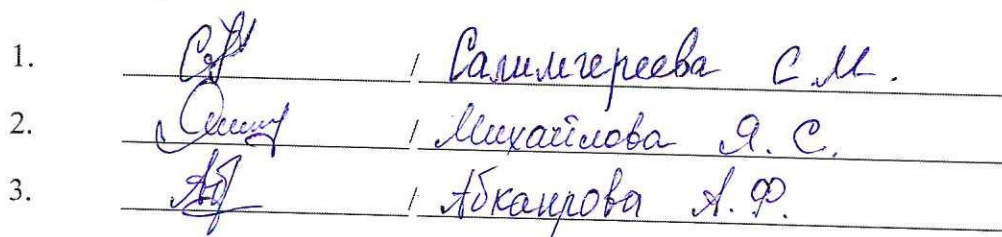 1. / Салимгереева С.М.
2. / Михайлова Я.С.
3. / Абкаирова А.Ф.